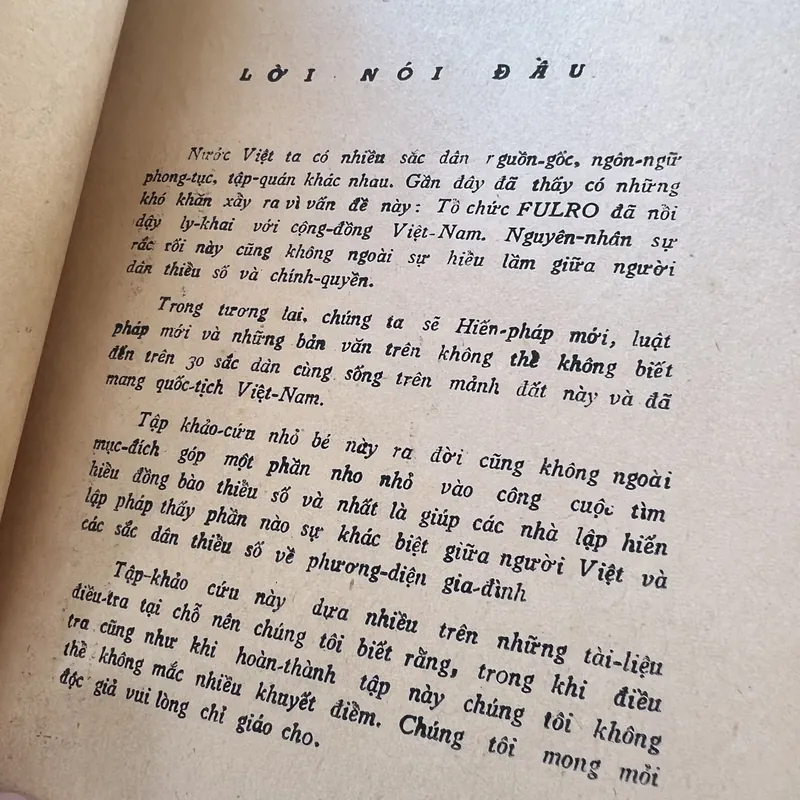 LỜI NÓI ĐẦU
Nước Việt ta có nhiều sắc dân nguồn-gốc, ngôn-ngữ
phong-tục, tập-quán khác nhau. Gần đây đã thấy có những
khó khăn xảy ra vì vấn đề này: Tổ chức FULRO đã nổi
dậy ly-khai với cộng-đồng Việt-Nam. Nguyên-nhân sự
rắc rối này cũng không ngoài sự hiểu lầm giữa người
dân thiểu số và chính-quyền.
Trong tương lai, chúng ta sẽ Hiến-pháp mới, luật
pháp mới và những bản văn trên không thể không biết
đến trên 30 sắc dân cùng sống trên mảnh đất này và đã
mang quốc-tịch Việt-Nam.
Tập khảo-cứu nhỏ bé này ra đời cũng không ngoài
mục-đích góp một phần nho nhỏ vào công cuộc tìm
hiểu đồng bào thiểu số và nhất là giúp các nhà lập hiến
lập pháp thấy phần nào sự khác biệt giữa người Việt và
các sắc dân thiểu số về phương-diện gia-đình
Tập-khảo cứu này dựa nhiều trên những tài-liệu
điều-tra tại chỗ nên chúng tôi biết rằng, trong khi điều
tra cũng như khi hoàn-thành tập này chúng tôi không
thể không mắc nhiều khuyết điểm. Chúng tôi mong mỏi
độc giả vui lòng chỉ giáo cho.